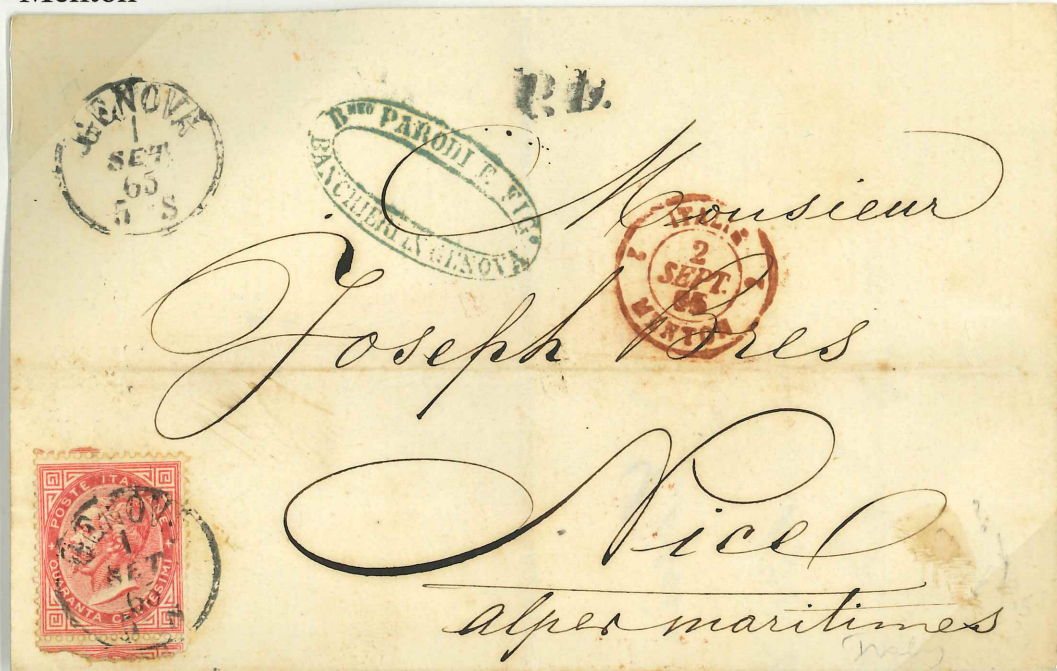 Menton
GENOVA
1
SET
65
5 S
P.D.
Bmeo PARODI E FIG.
BANCHIERI IN GENOVA
Monsieur
ITALIE
2
SEPT.
65
MENTON
2 2
Joseph Bres
Nice
alpes maritimes
Italy
POSTE ITALIANE
QUARANTA CENTESIMI
GENOV.
1
SET
65